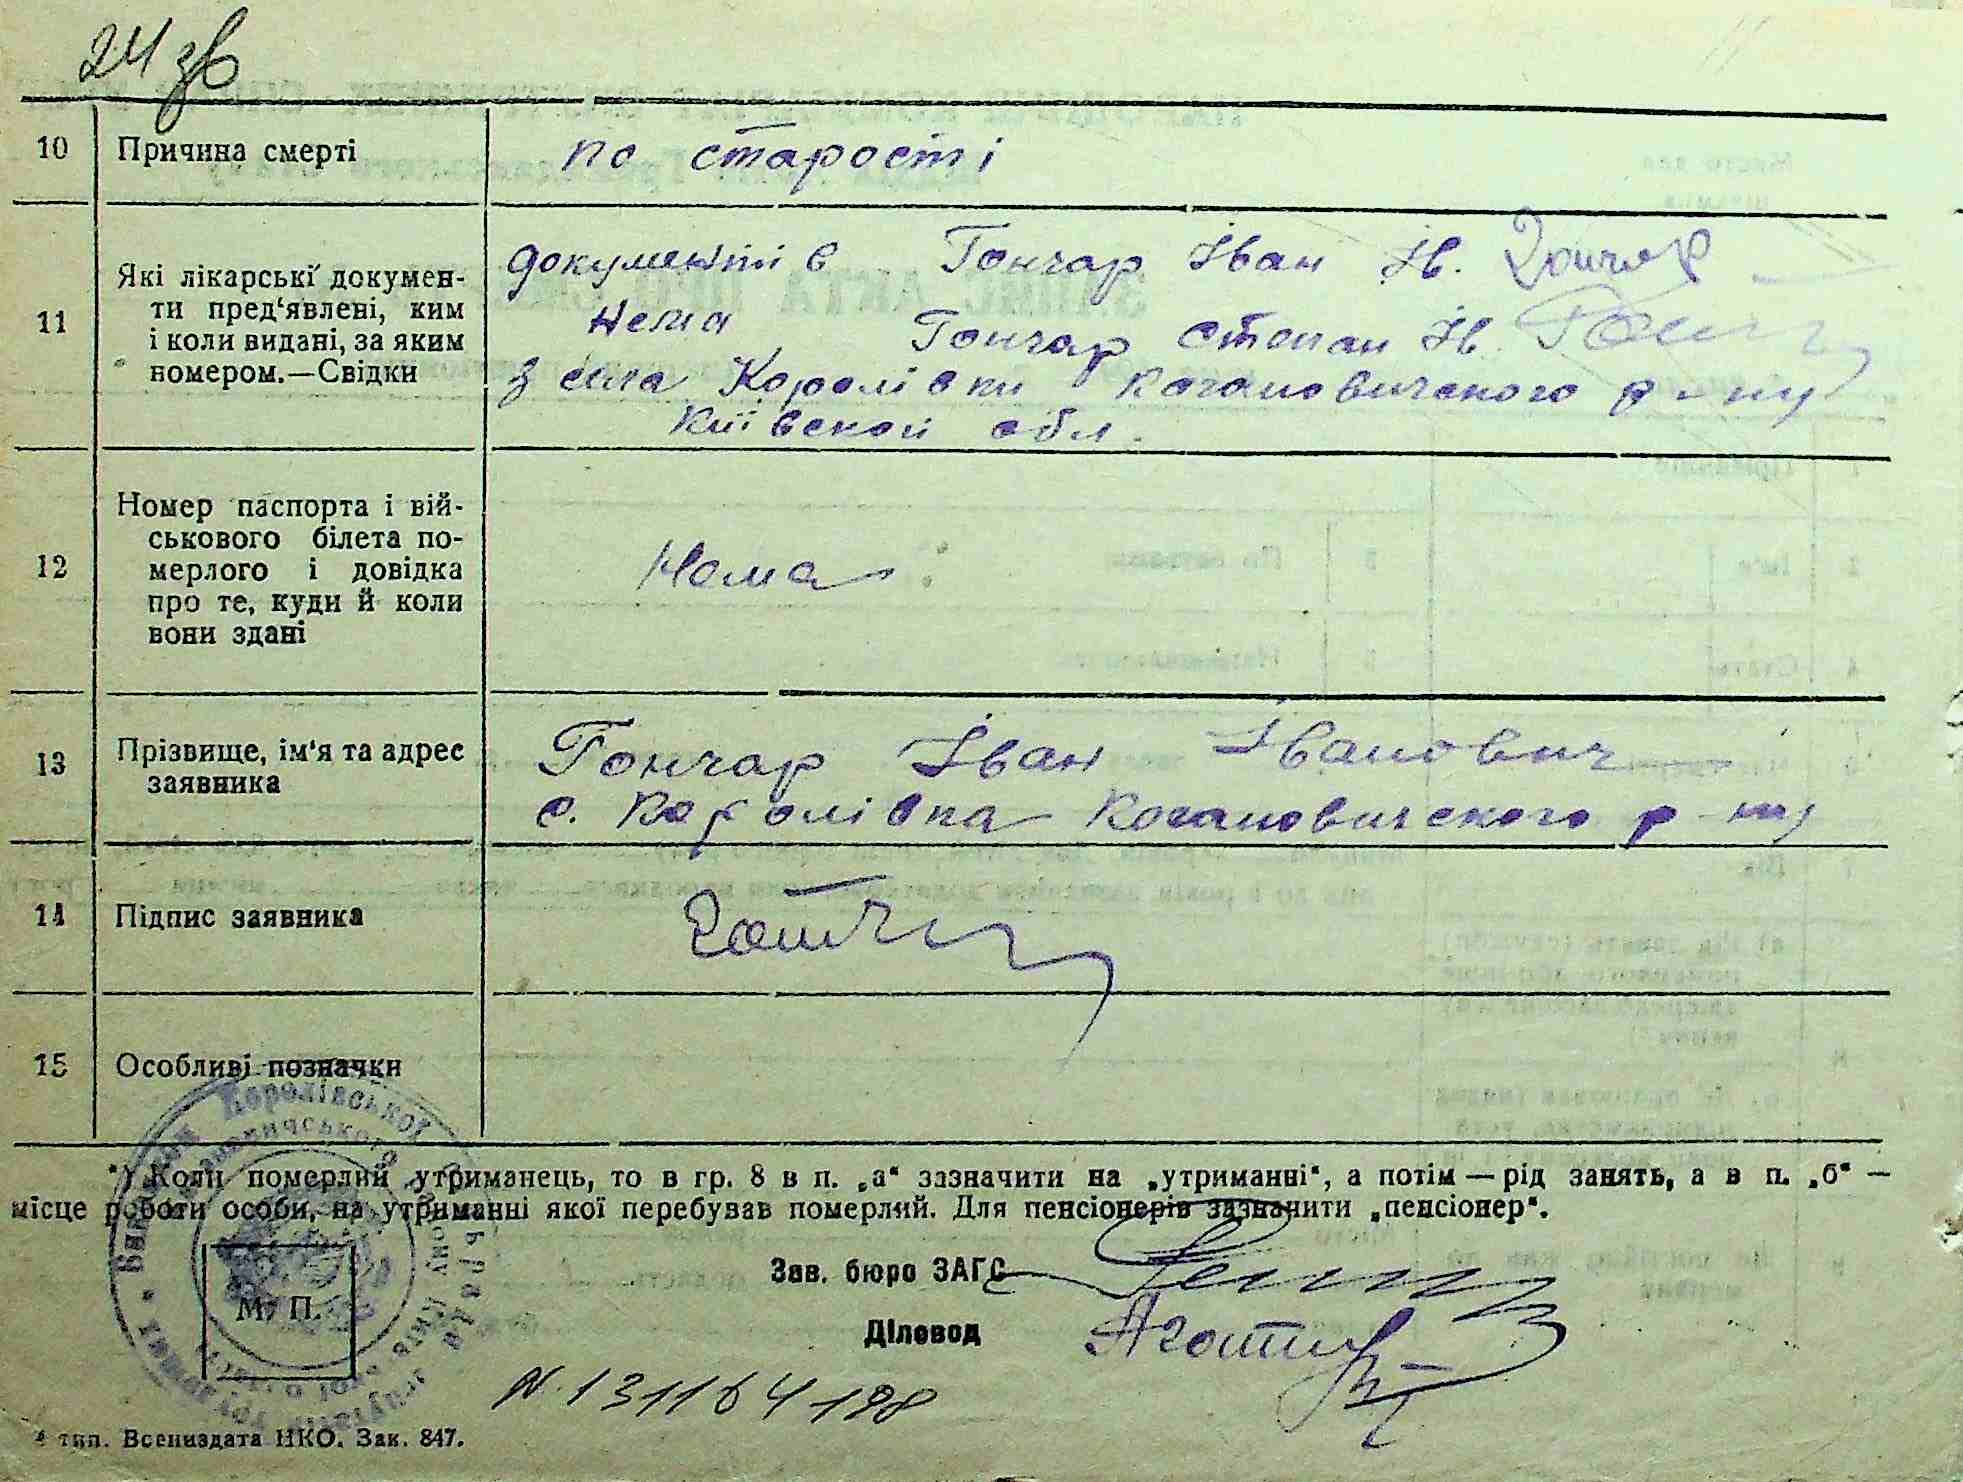 24 зв
10 Причина смерті по старості
11 Які лікарські докумен-
ти пред‘явлені, ким
і коли видані, за яким
номером.—Свідки
документів Гончар Іван Ів. Гончар
нема Гончар Степан Ів.
з села Королівки Кагановичского р-ну
Київской обл.
12 Номер паспорта і вій-
ськового білета по-
мерлого і довідка
про те, куди й коли
вони здані
Нема
13 Прізвище, ім‘я та адрес
заявника
Гончар Іван Іванович
с. Королівка Кагановичского р-ну
14 Підпис заявника
15 Особливі позначки
*) Коли померлий утриманець, то в гр. 8 в п. „а“ зазначити на „утриманні“, а потім — рід занять, а в п. „б“ —
місце роботи особи, на утриманні якої перебував померлий. Для пенсіонерів зазначити „пенсіонер“.
Зав. бюро ЗАГС
М. П.
Діловод
N. 131164198
4 тип. Всениздата НКО. Зак. 847.